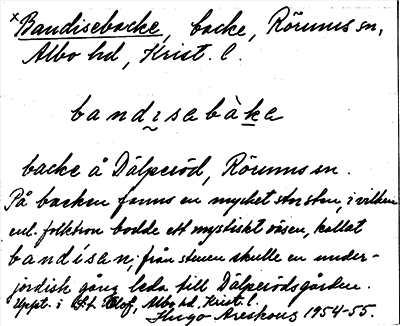 × Bandisebacke, backe, Rörums sn,
Albo hd, Krist. l.
bandisabàka
backe å Dälperöd, Rörums sn.
På backen fanns en mycket stor sten, i vilken
enl. folktron bodde ett mystiskt väsen, kallat
bandísen; från stenen skulle en under-
jordisk gång leda till Dälperödsgården.
Uppt. i S:t Olof, Albo hd. Krist. l.
Hugo Areskoug 1954-55.